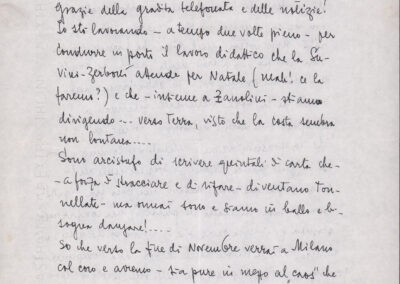 Grazie della gradita telefonata e delle notizie!
Io sto lavorando - a tempo due volte pieno - per
condurre in porto il lavoro didattico che la Su-
vini-Zerboni attende per Natale ( ce la
faremo?) e che - insieme a Zanolini - stiamo
dirigendo ... verso terra, visto che la costa sembra
non lontana....
Sono arcistufo di scrivere quintali di carta che -
- a forza di stracciare e di rifare - diventano ton-
nellate - ma ormai sono e siamo in ballo e bi-
sogna danzare!....
So che verso la fine di Novembre verrai a Milano
col coro e avremo - sia pure in mezzo al "caos" che